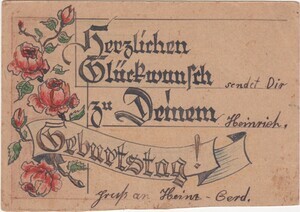 Herzlichen
Glückwunsch sendet Dir
zu Deinem Heinrich.
Geburtstag!
Gruß an Heinz-Gerd.